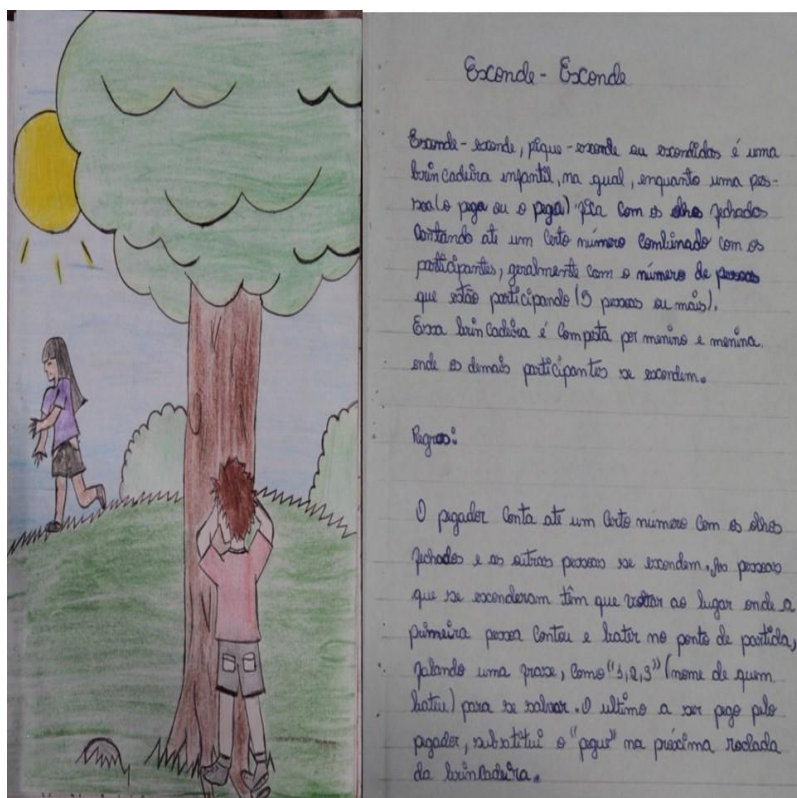 Esconde - Esconde
Esconde - esconde, pique - esconde ou escondidas é uma
brincadeira infantil, na qual, enquanto uma pes-
soa (o pega ou o pega) fica com os olhos fechados
contando até um certo número combinado com os
participantes, geralmente com o número de pessoas
que estão participando (5 pessoas ou mais).
Essa brincadeira é composta por menino e menina.
onde os demais participantes se escondem.
Regras:
O pegador conta até um certo numero com os olhos
fechados e as outras pessoas se escondem. As pessoas
que se esconderam têm que voltar ao lugar onde a
primeira pessoa contou e bater no ponto de partida,
falando uma frase, como "1,2,3" (nome de quem
bateu) para se salvar. O ultimo a ser pego pelo
pegador, substitui o "pegue" na próxima rodada
da brincadeira.